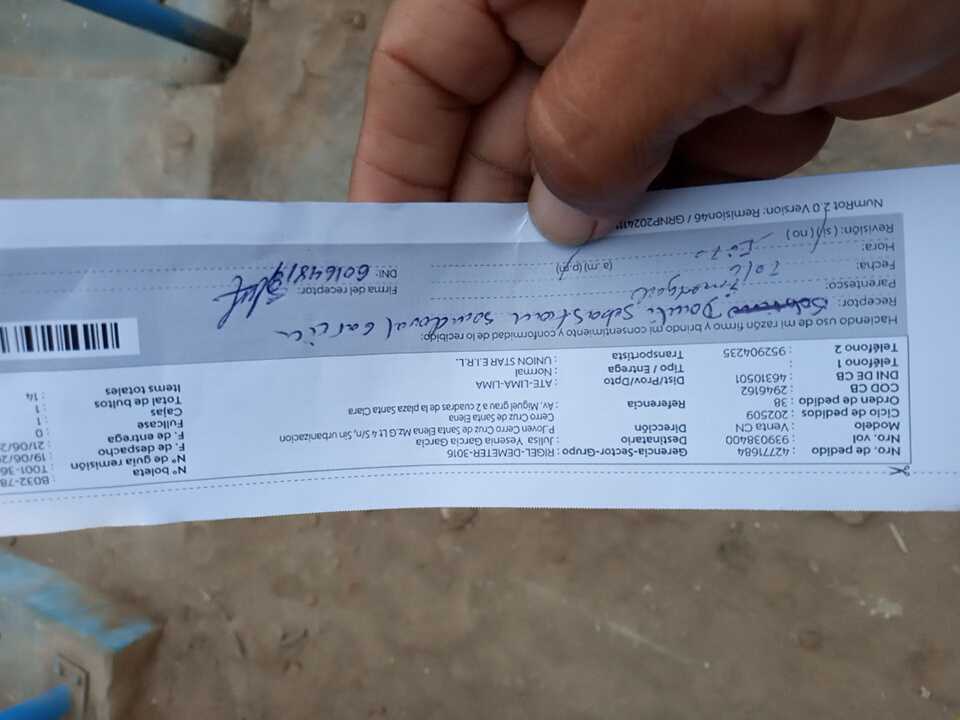 Nro. de pedido : 42771684
Nro. vol : 939038400
Modelo : Venta CN
Ciclo de pedidos : 202509
Orden de pedido : 38
COD CB : 2946162
DNI DE CB : 46310501
Teléfono 1 :
Teléfono 2 : 952904235
Gerencia-Sector-Grupo : RIGEL-DEMETER-3016
Destinatario : Julisa Yesenia García García
Dirección : P. Joven Cerro Cruz de Santa Elena Mz.G Lt 4 , Sin, S/n, Sin urbanizacion
Cerro Cruz de Santa Elena
Referencia : Av. Miguel Grau a 2 cuadras de la plaza Santa Clara
Distr/Prov/Dpto : ATE-LIMA-LIMA
Tipo / Entrega : Normal
Transportista : UNION STAR E.I.R.L.
N° boleta : B032-78
N° de guía remisión : T001-36
F. de despacho : 19/06/2
F. de entrega : 21/06/2
Fullcase : 0
Cajas : 1
Total de bultos : 1
Items totales : 14
Haciendo uso de mi razón firmo y brindo mi consentimiento y conformidad de lo recibido:
Receptor: Sebastian Sandoval Garcia
Parentesco:
Fecha:
Hora: (a.m) (p.m)
Revisión: (si) (no)
Firma del receptor:
DNI: 60164819
NumRot 2.0 Version: Remision46 / GRNP202411*